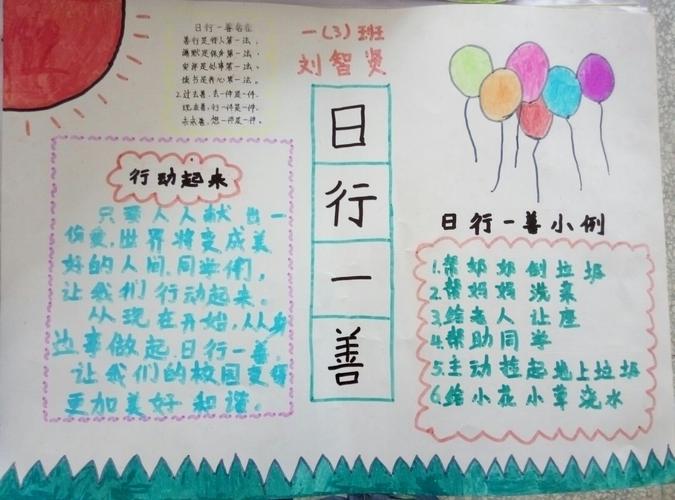 日行一善名言
善行是待人第一法、
幽默是保身第一法、
安详是好事第一法、
读书是养心第一法。
2.过去善,去一件是一件、
现在善,行一件是一件、
永永善,想一件是一件。
一(3)班
刘智贤
日
行
一
善
行动起来
只要人人献出一
份爱,世界将变成美
好的人间,同学们,
让我们行动起来。
从现在开始,从身
边事做起,日行一善,
让我们的校园变得
更加美好和谐。
日行一善小例
1.帮奶奶倒垃圾
2.帮妈妈洗菜
3.给老人让座
4.帮助同学
5.主动捡起地上垃圾
6.给小花小草浇水